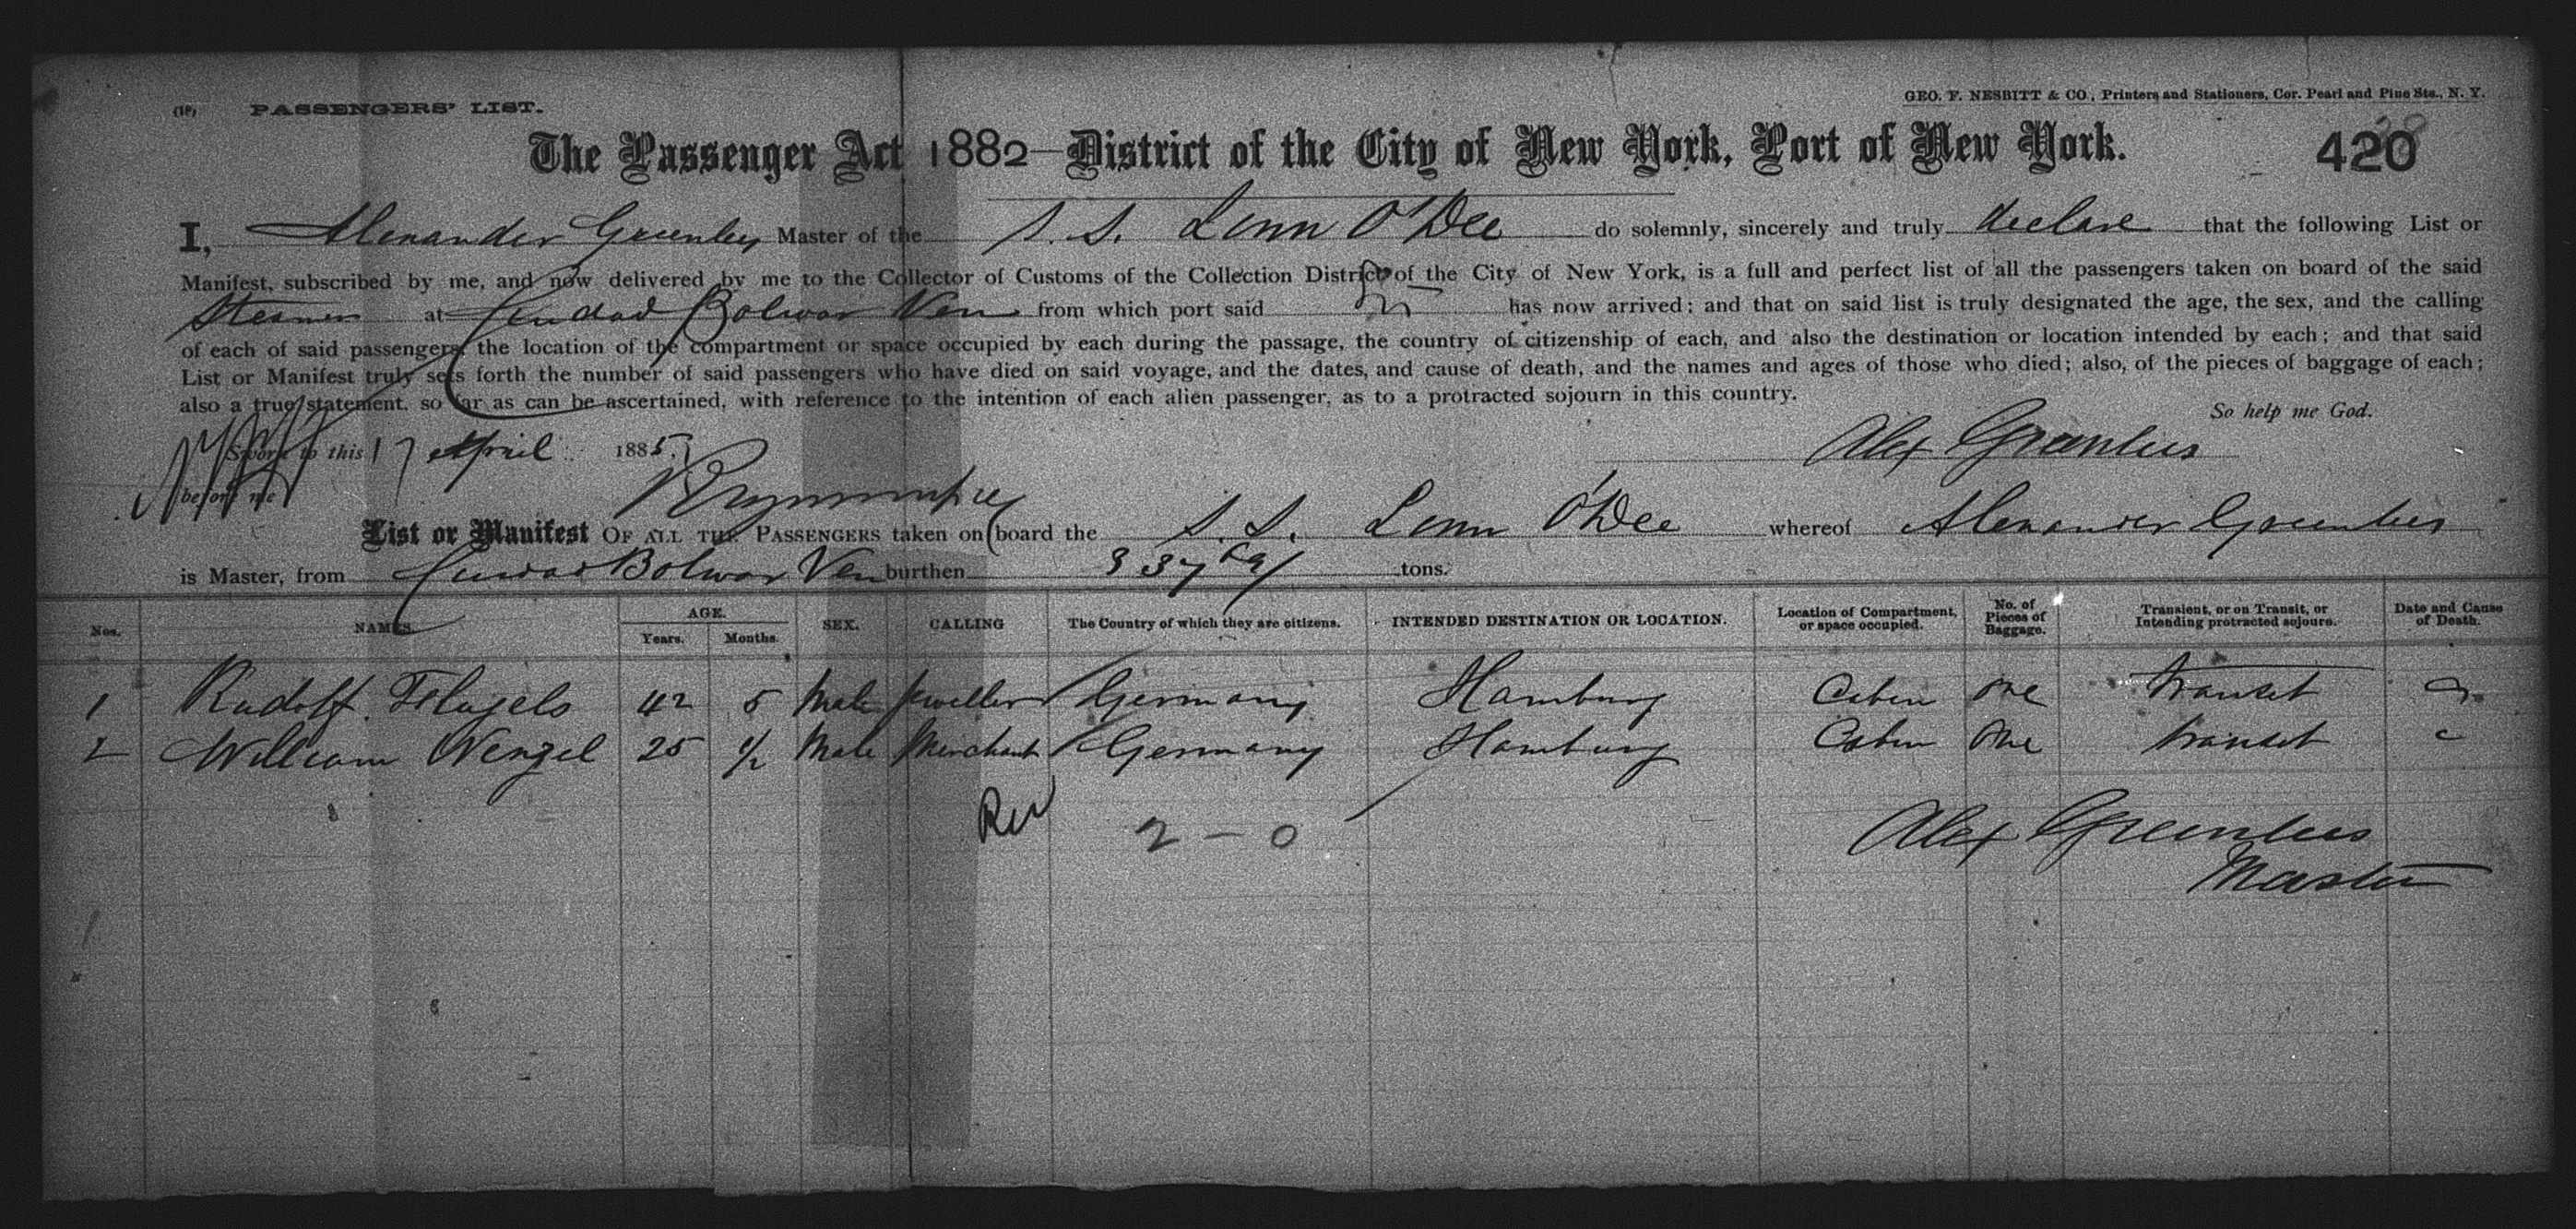 (18) PASSENGERS' LIST.
GEO. F. NESBITT & CO., Printers and Stationers, Cor. Pearl and Pine Sts., N. Y.
The Passenger Act 1882—District of the City of New York, Port of New York.
420
I, Alexander Greenlees Master of the S.S. Lenn O'Dee do solemnly, sincerely and truly declare that the following List or
Manifest, subscribed by me, and now delivered by me to the Collector of Customs of the Collection District of the City of New York, is a full and perfect list of all the passengers taken on board of the said
Steamer at Ciudad Bolivar Ven from which port said has now arrived; and that on said list is truly designated the age, the sex, and the calling
of each of said passengers, the location of the compartment or space occupied by each during the passage, the country of citizenship of each, and also the destination or location intended by each; and that said
List or Manifest truly sets forth the number of said passengers who have died on said voyage, and the dates, and cause of death, and the names and ages of those who died; also, of the pieces of baggage of each;
also a true statement, so far as can be ascertained, with reference to the intention of each alien passenger, as to a protracted sojourn in this country.
So help me God.
Sworn to this 17 April 1885.
Alex Greenlees
before me
List or Manifest OF ALL THE PASSENGERS taken on board the S.S. Lenn O'Dee whereof Alexander Greenlees
is Master, from Ciudad Bolivar Ven burthen 337 69/ tons.
Nos. NAMES. AGE. Years. Months. SEX. CALLING The Country of which they are citizens. INTENDED DESTINATION OR LOCATION. Location of Compartment, or space occupied. No. of Pieces of Baggage. Transient, or on Transit, or Intending protracted sojourn. Date and Cause of Death.
1 Rudolf Flugels 42 5 Male Jweller Germany Hamburg Cabin One transit
2 William Wenzel 25 1/2 Male Merchant Germany Hamburg Cabin One transit
2 – 0
Alex Greenlees
Master